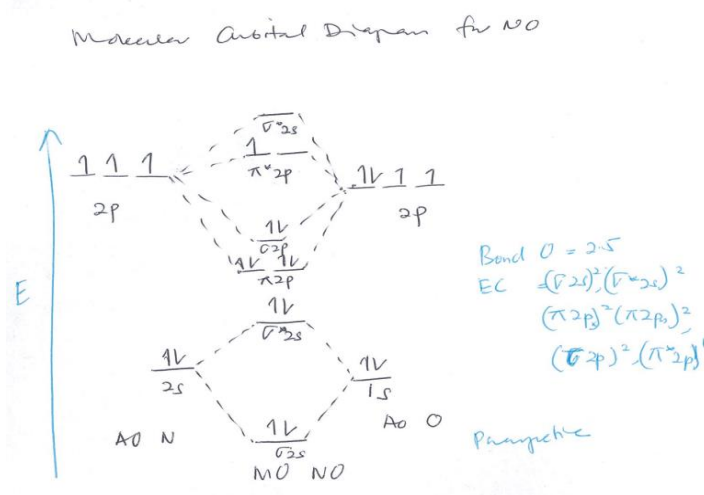 Molecular Orbital Diagram for NO
σ*2s
1
π*2p
1 1 1
2p
1L 1 1
2p
1L
σ2p
1L 1L
π2p
1L
σ*2s
1L
2s
1L
1s
1L
σ2s
AO N
AO O
MO NO
E
Bond O = 2.5
EC (σ2s)² (σ*2s)²
(π2p)² (π2p)²
(σ2p)² (π*2p)¹
Paramagnetic